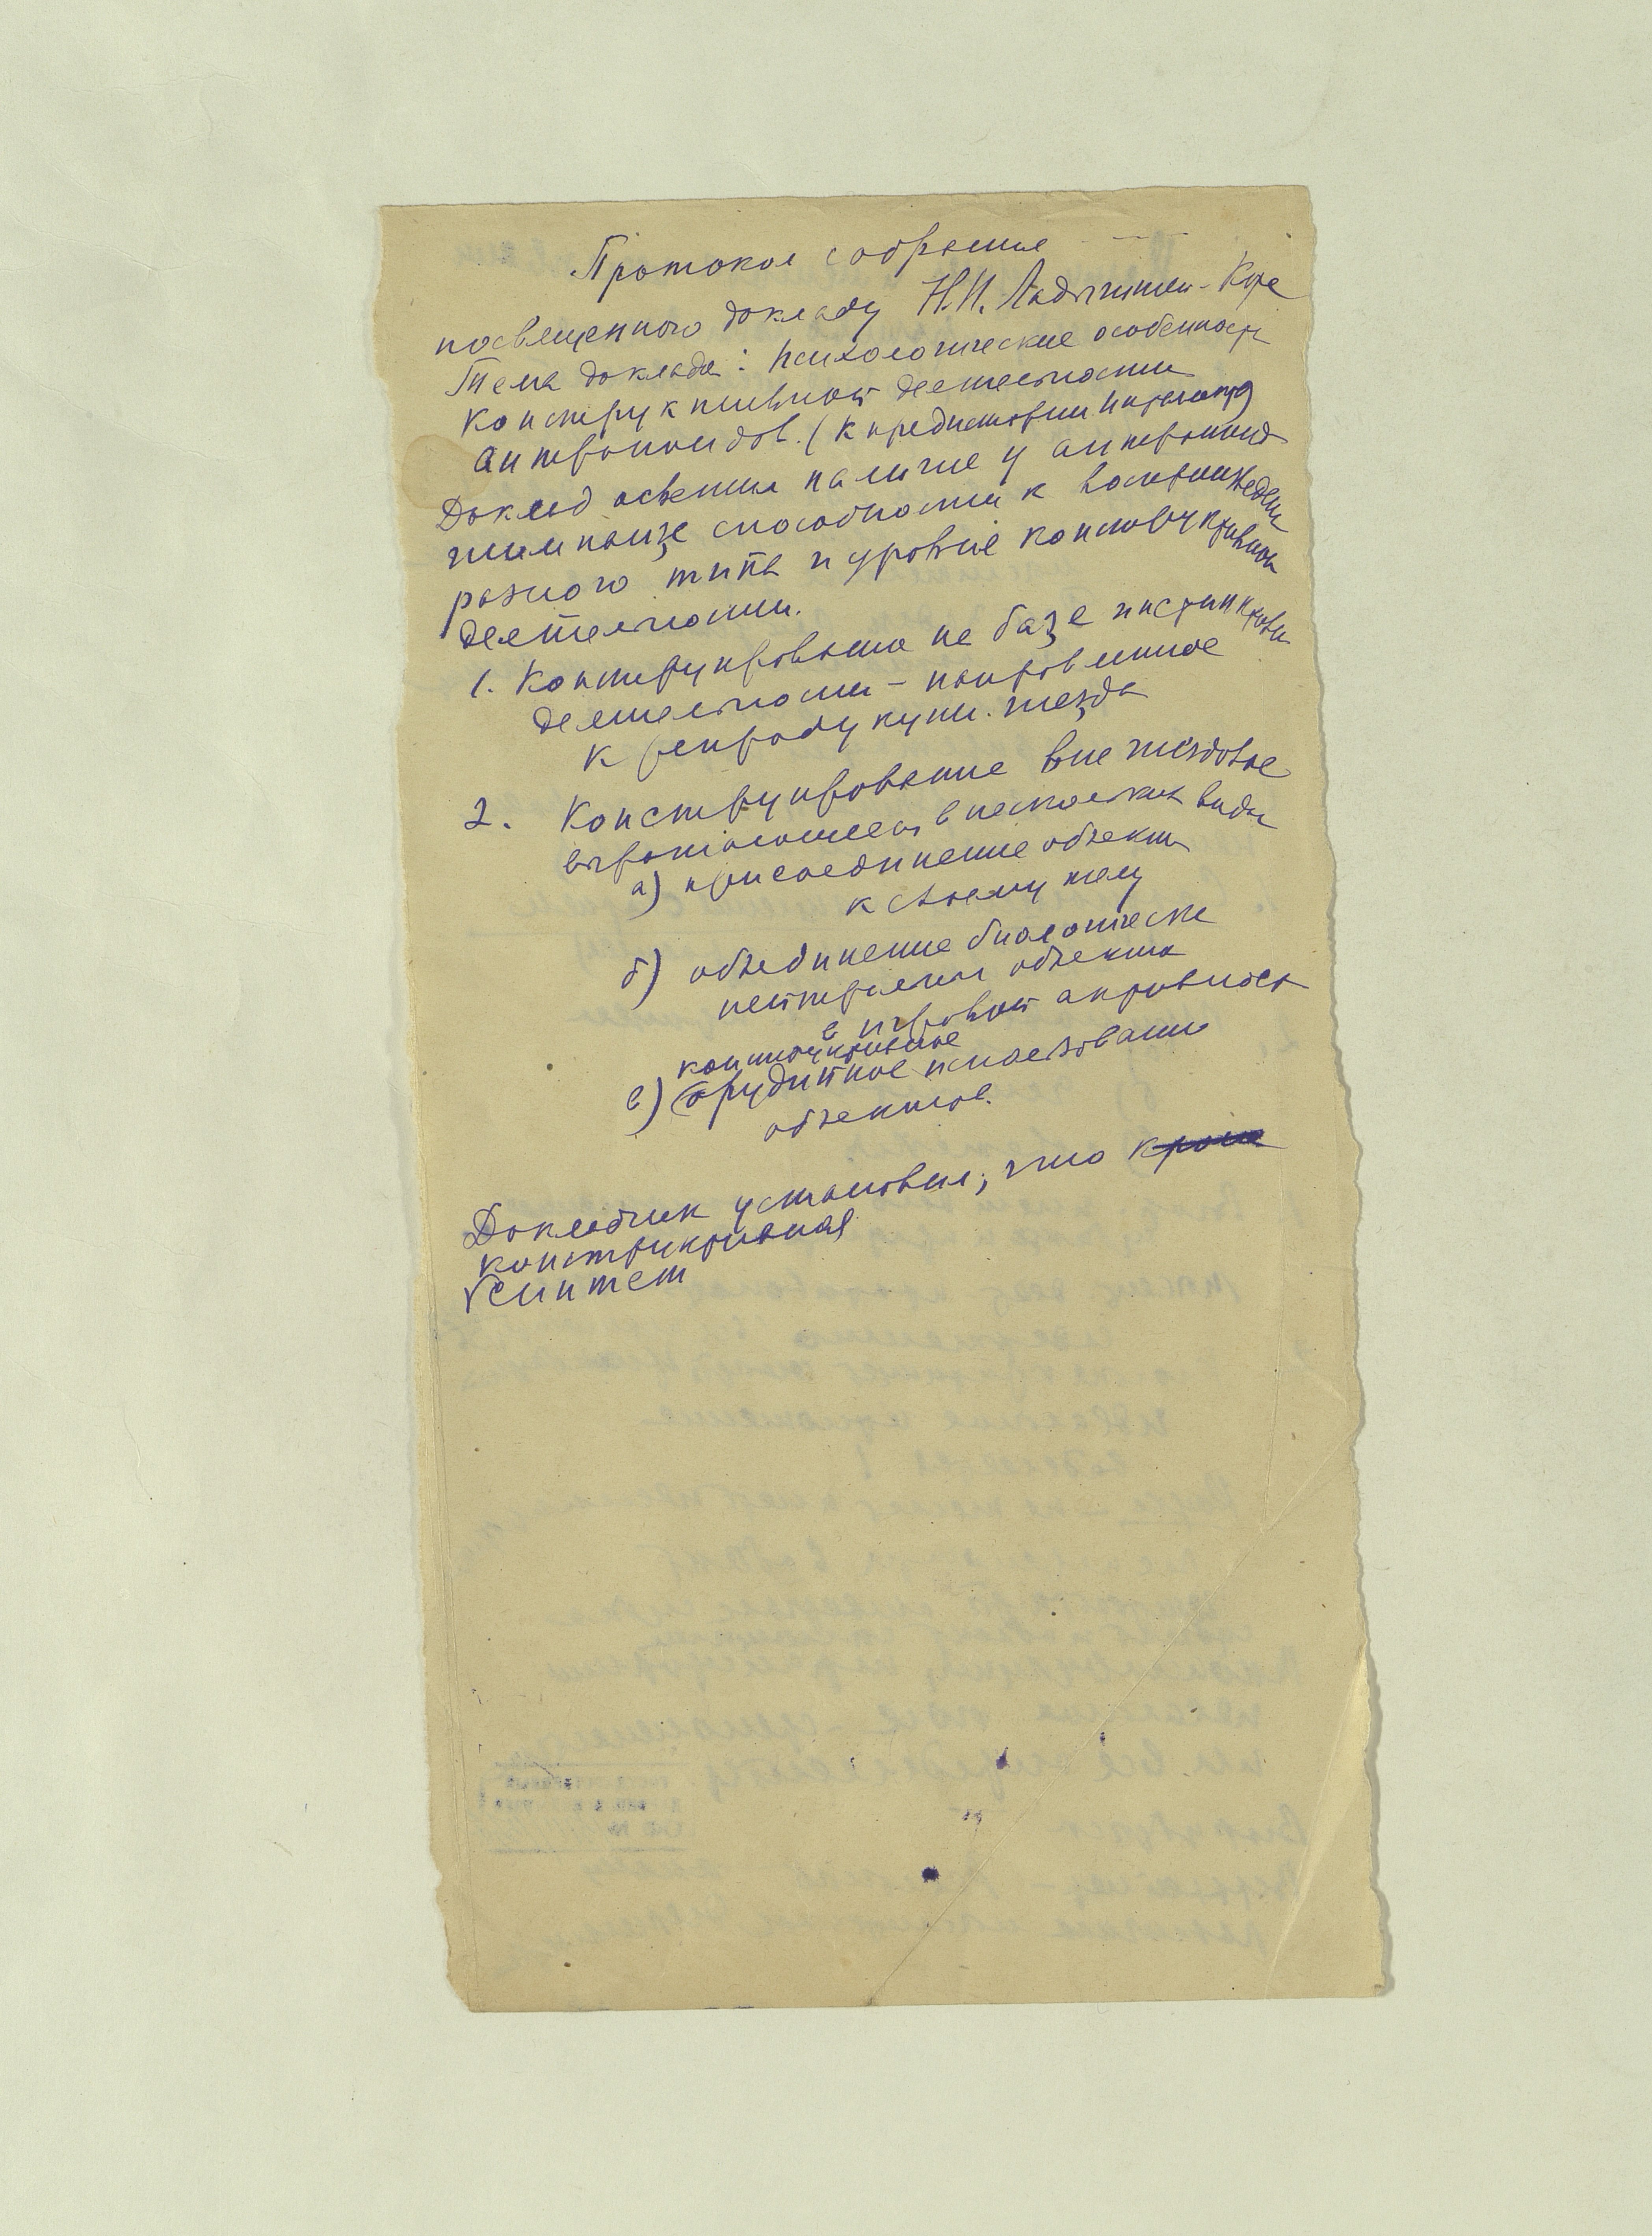 Протокол собрания
посвященного докладу Н.Н. Ладыгиной-Котс
Тема доклада: Психологические особенности
конструктивной деятельности
антропоидов. (К предистории интеллекта)
Доклад осветил наличие у антропоида
шимпанзе способности к воспроизведению
разного типа и уровня конструктивной
деятельности.
1. Конструирование на базе инстинктивн
деятельности – направленное
к репродукции. гнезда
2. Конструирование вне гнездовое
выражающееся в нескольких видах
а) присоединение объекта
к своему телу
б) объединение биологически
нейтральных объектов
в игровой активности
конструктивное
в) орудийное использование
объектов.
Докладчик установил, что кроме
конструктивная
синтет